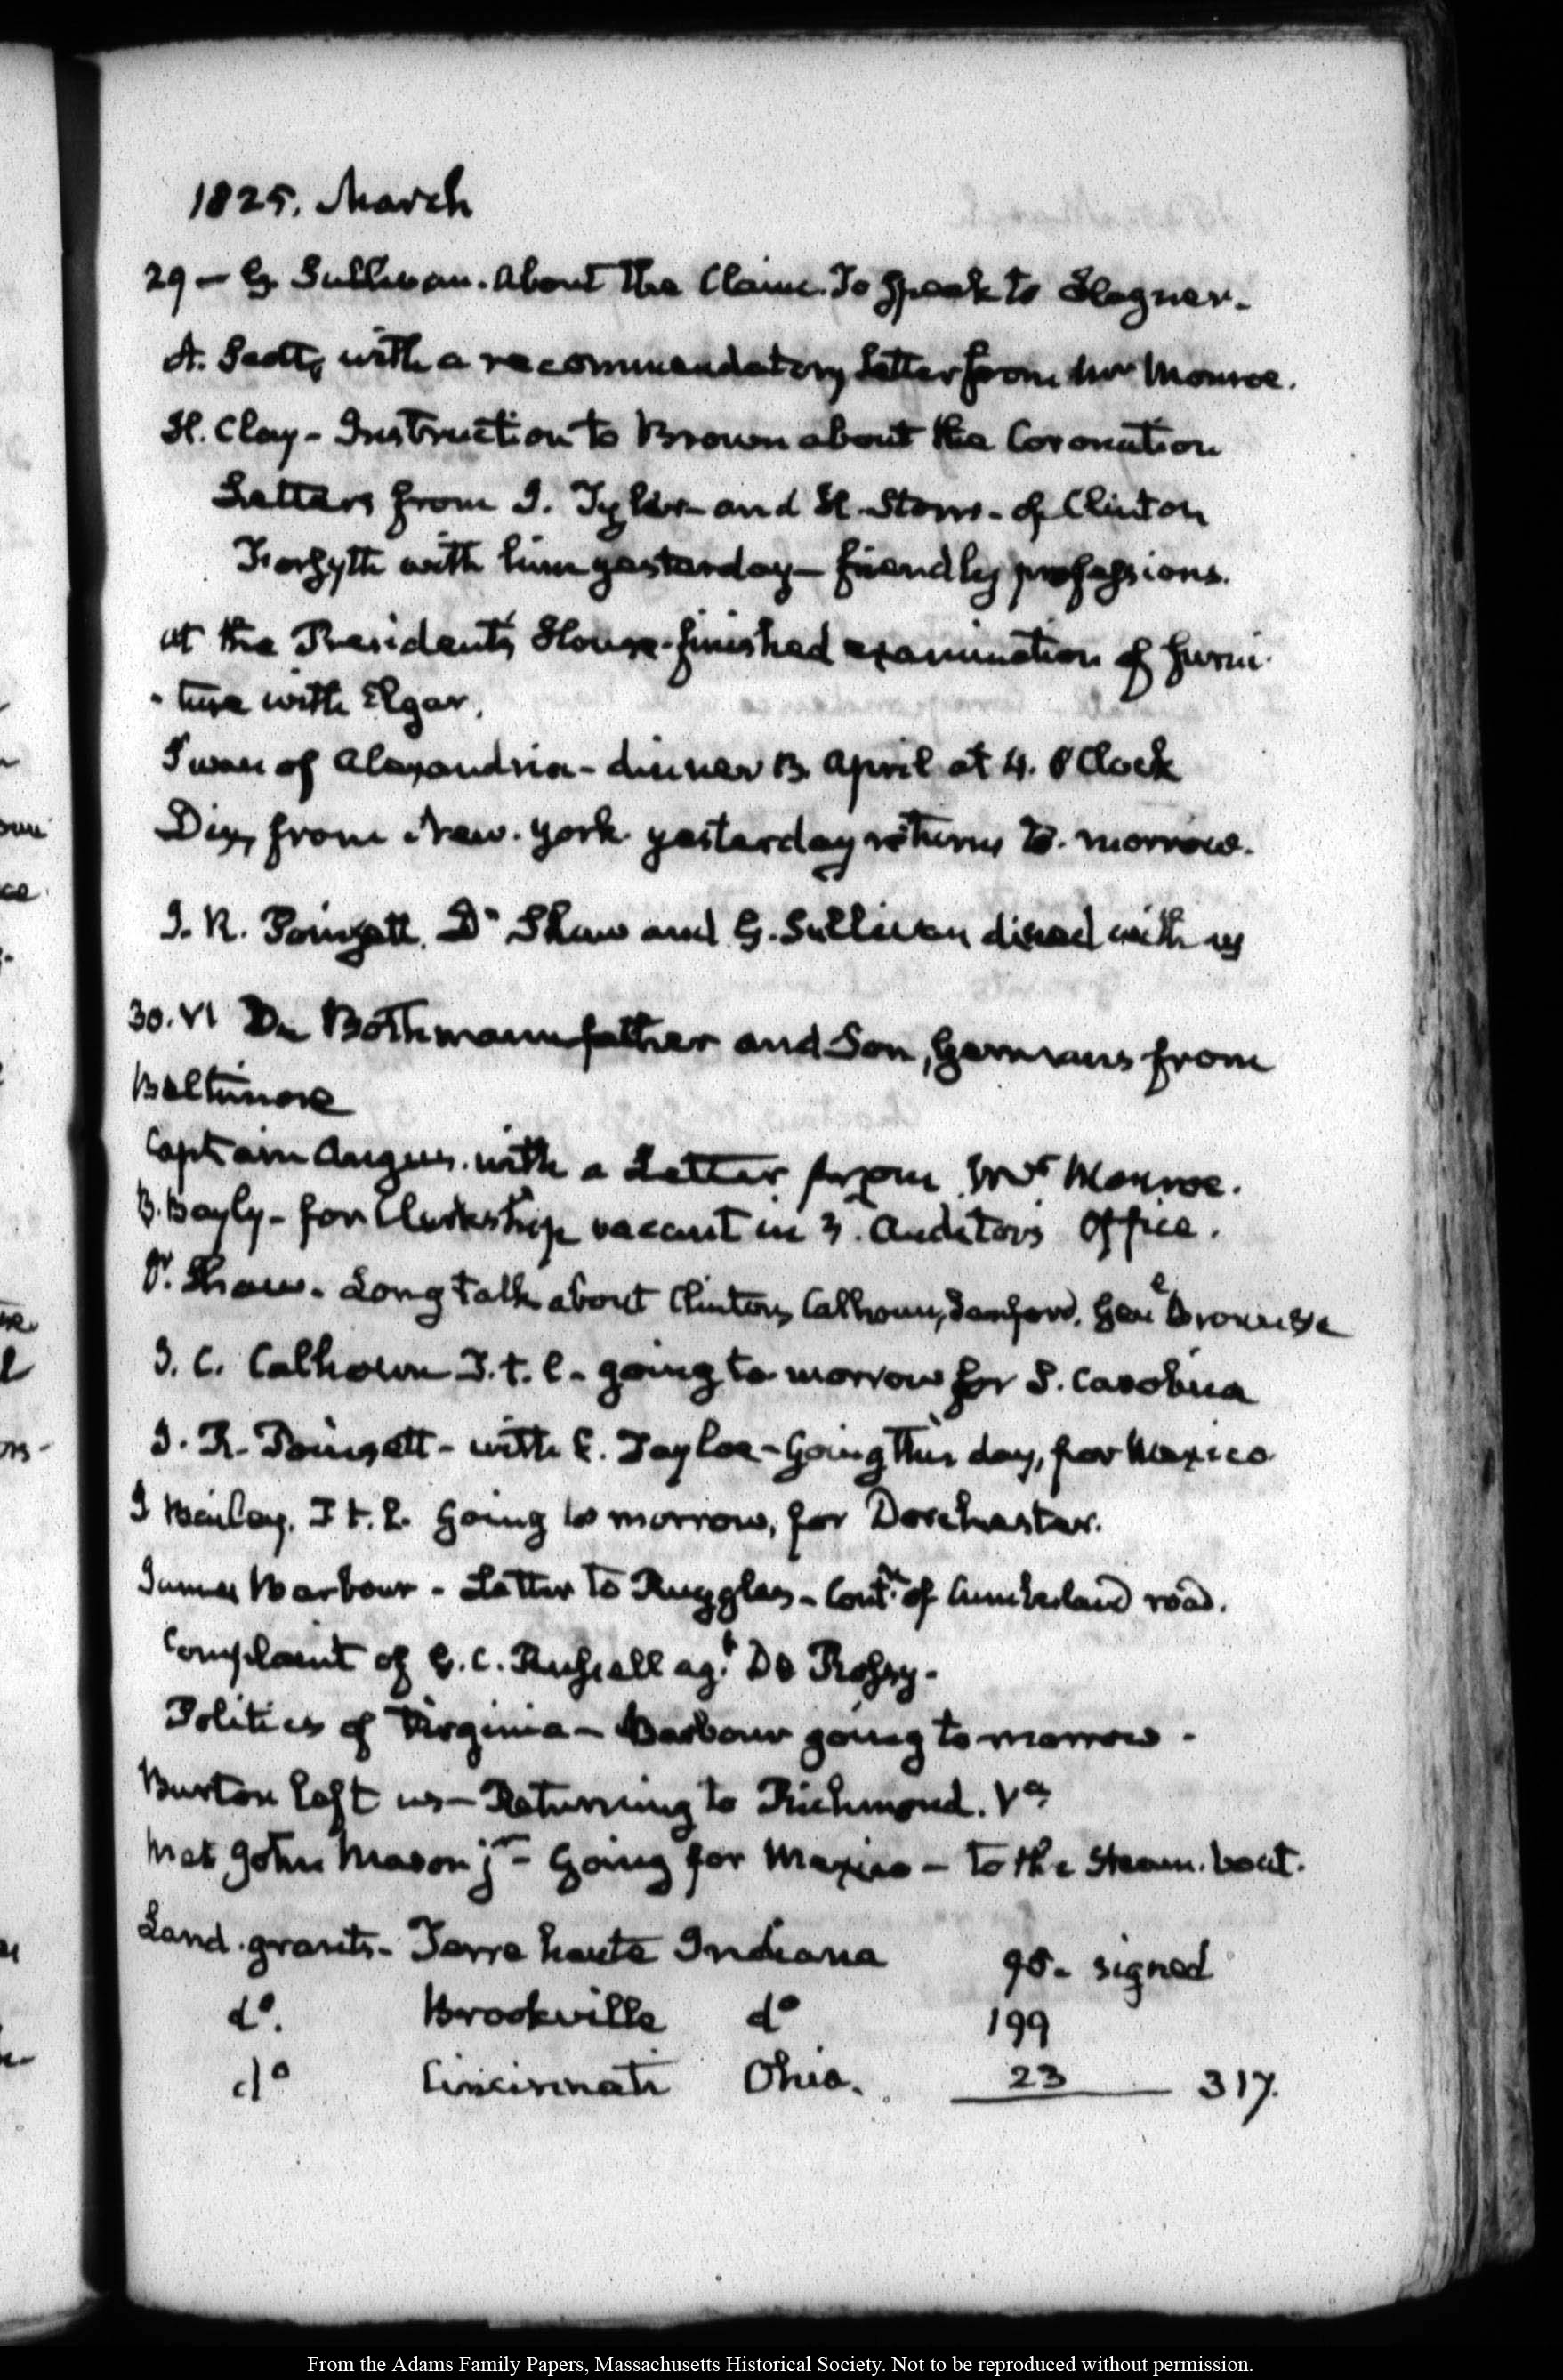 1825. March
29 — G. Sullivan. About the Claim. To speak to Hagner.
A. Scott, with a recommendatory Letter from Mr Monroe.
H. Clay - Instruction to Brown about the Coronation
Letters from J. Tyler and H. Storrs - of Clinton
Forsyth with him yesterday - friendly professions.
at the President's House - finished examination of furni-
-ture with Elgar.
Swan of Alexandria - dinner 13. April at 4. O'Clock
Dix, from New-York yesterday returns to-morrow.
J. R. Poinsett. Dr Shaw and G. Sullivan dined with us
30. VI De Bothmann father and Son, Germans from
Baltimore
Captain Angus. with a Letter from Mr Monroe.
B. Bayly - for Clerkship vacant in 3. Auditor's Office.
Dr. Shaw. Long talk about Clinton, Calhoun, Sanford, Genl Brown &c
J. C. Calhoun T. t. l. - going to-morrow for S. Carolina
J. R. Poinsett - with E. Tayloe - Going this day, for Mexico
J Bailey. T t. L. Going to morrow, for Dorchester.
James Barbour - Letter to Ruggles - Contn. of Cumberland road.
Complaint of G. C. Russell agt. De Rossy -
Politics of Virginia - Barbour going to-morrow -
Burton left us - Returning to Richmond. Va
Met John Mason jr - Going for Mexico - to the Steam-boat.
Land-grants - Terre haute Indiana 95 - signed
do. Brookville do 199
do Cincinnati Ohio. 23 317.
From the Adams Family Papers, Massachusetts Historical Society. Not to be reproduced without permission.